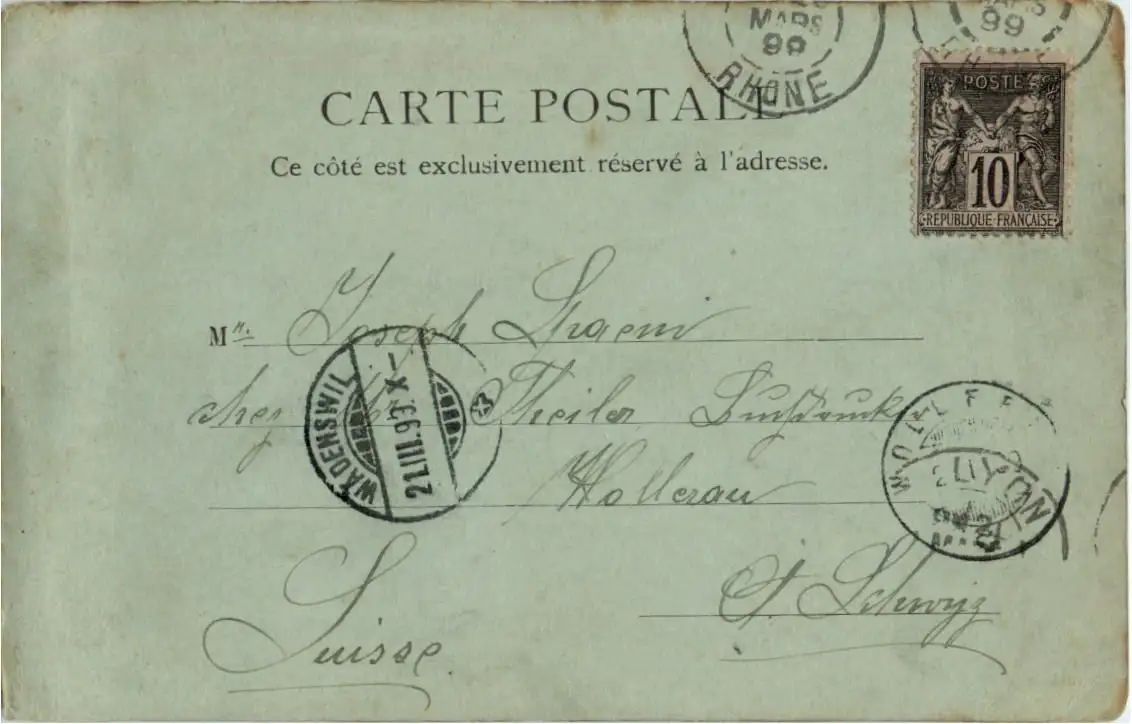 MARS
99
RHONE
MARS
99
POSTE
10
REPUBLIQUE FRANÇAISE
CARTE POSTALE
Ce côté est exclusivement réservé à l'adresse.
Mr. Joseph
chez Theiler Buchdruck
Wollerau
Ct. Schwyz
Suisse
WÄDENSWIL
21.III.99.X-
WOLLERAU
LYON